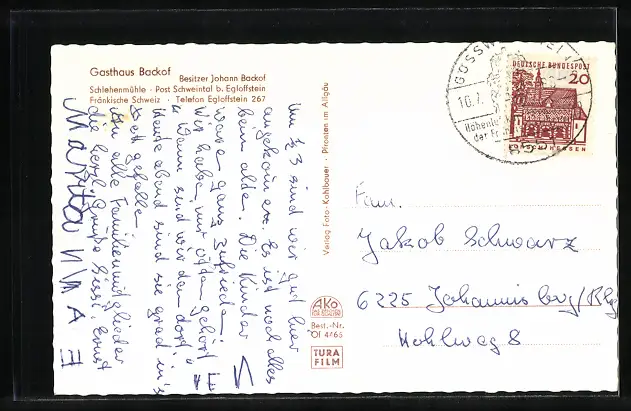 Gasthaus Backof
Besitzer Johann Backof
Schlehenmühle · Post Schweintal b. Egloffstein
Fränkische Schweiz · Telefon Egloffstein 267
Um ½ 3 sind wir gut hier
angekommen. Es ist noch alles
beim alten. Die Kinder
waren ganz zufrieden.
Wir haben nur öfter gehört
„Wann sind wir denn dort."
Heute abend sind sie grad in's
Bett gefallen.
An alle Familienmitglieder
die herzl. Grüße Sissi, Ernst
Verlag Foto-Kahlbauer · Pfronten im Allgäu
AKO
Best.-Nr.
Of 4/65
TURA
FILM
GÖSSWEINSTEIN
10.7.
der Fr
DEUTSCHE BUNDESPOST
20
LORSCH/HESSEN
Fam.
Jakob Schwarz
6225 Johannisberg/Rhg
Hohlweg 8